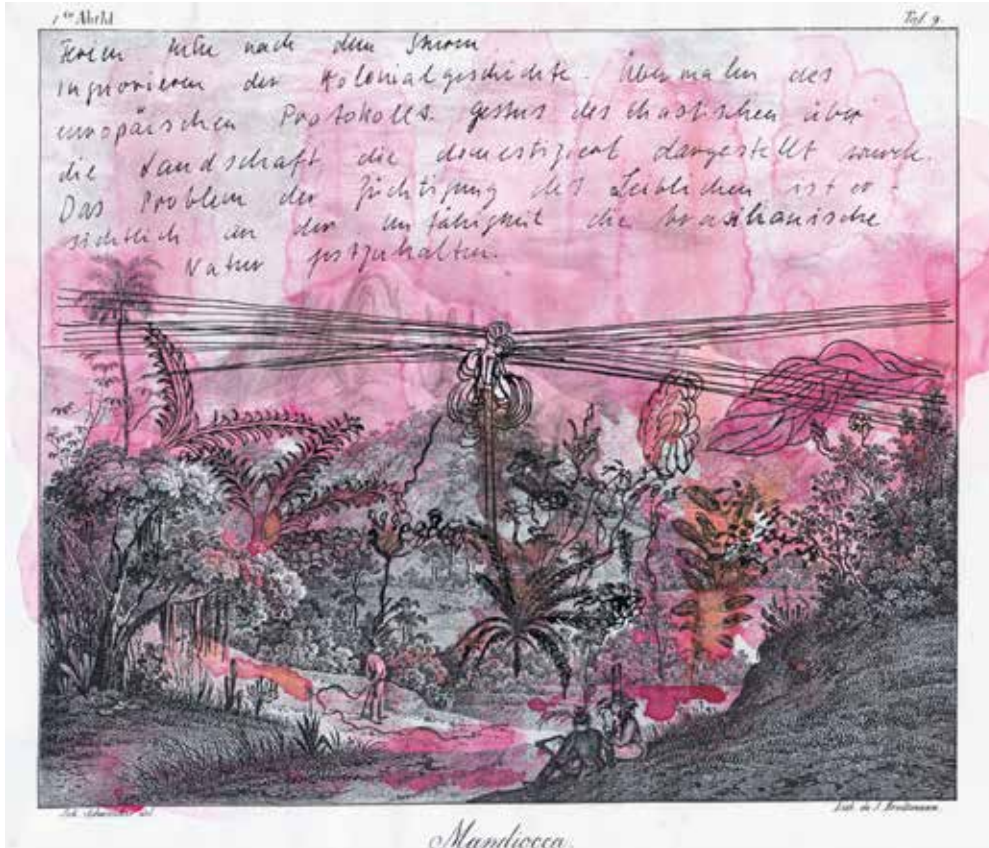 1te Abth
Taf. 9.
nach dem
der Kolonialgeschichte. Übermalen des
europäischen Protokolls. gestus des chaotischen über
die Landschaft, die domestiziert dargestellt wurde.
Das Problem der Züchtigung des Leiblichen ist er-
sichtlich an der unfähigkeit die brasilianische
Natur festzuhalten.
Lith. de
Mandiocca.